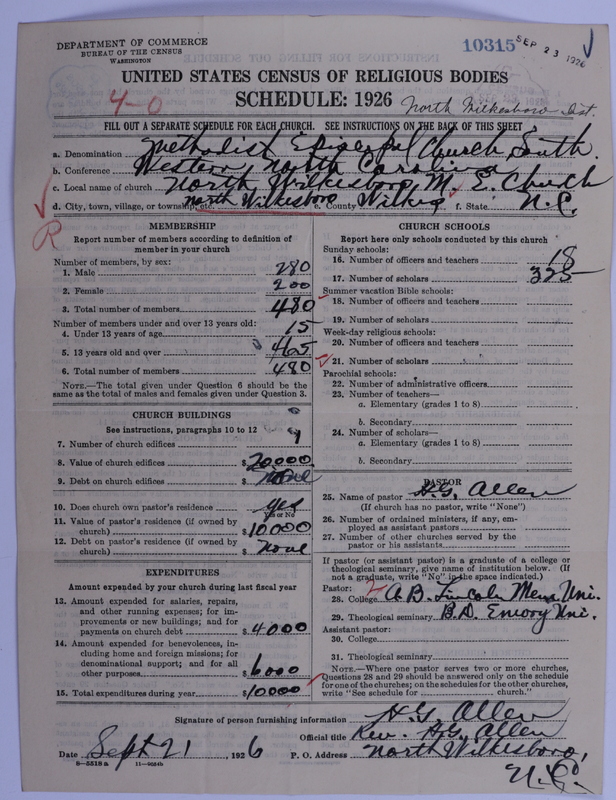 DEPARTMENT OF COMMERCE
BUREAU OF THE CENSUS
WASHINGTON
10315
SEP 23 1926
UNITED STATES CENSUS OF RELIGIOUS BODIES
SCHEDULE: 1926
4-0
North Wilkesboro Dist.
FILL OUT A SEPARATE SCHEDULE FOR EACH CHURCH. SEE INSTRUCTIONS ON THE BACK OF THIS SHEET
a. Denomination Methodist Episcopal Church, South.
b. Conference Western North Carolina
c. Local name of church North Wilkesboro M. E. Church
d. City, town, village, or township, etc. North Wilkesboro e. County Wilkes f. State N.C.
R
MEMBERSHIP
Report number of members according to definition of member in your church
Number of members, by sex:
1. Male 280
2. Female 200
3. Total number of members 480
Number of members under and over 13 years old:
4. Under 13 years of age 15
5. 13 years old and over 465
6. Total number of members 480
NOTE.—The total given under Question 6 should be
same as the total of males and females given under Question 3.
CHURCH BUILDINGS
See instructions, paragraphs 10 to 12
7. Number of church edifices 1
8. Value of church edifices $ 20000.
9. Debt on church edifices $ None
10. Does church own pastor's residence yes
Yes or No
11. Value of pastor's residence (if owned by
church) $ 10000
12. Debt on pastor's residence (if owned by
church) $ None
EXPENDITURES
Amount expended by your church during last fiscal year
13. Amount expended for salaries, repairs,
and other running expense; for im-
provements or new buildings; and for
payments on church debt $ 4000
14. Amount expended for benevolences, in-
cluding home and foreign missions; for
denominational support; and for all
other purposes $ 6000
15. Total expenditures during year $ 10000
CHURCH SCHOOLS
Report here only schools conducted by this church
Sunday schools:
16. Number of officers and teachers 18
17. Number of scholars 325
Summer vacation Bible schools:
18. Number of officers and teachers
19. Number of scholars
Week-day religious schools:
20. Number of officers and teachers
21. Number of scholars
Parochial schools:
22. Number of administrative officers
23. Number of teachers—
a. Elementary (grades 1 to 8)
b. Secondary
24. Number of scholars—
a. Elementary (grades 1 to 8)
b. Secondary
PASTOR
25. Name of pastor H.G. Allen
(If church has no pastor, write "None")
26. Number of ordained ministers, if any, em-
ployed as assistant pastors
27. Number of other churches served by the
pastor or his assistants
If pastor (or assistant pastor) is a graduate of a college or
theological seminary, give name of institution below. (If
not a graduate, write "No" in the space indicated.)
Pastor: 2
28. College A.B. Lincoln Mem. Uni.
29. Theological seminary B.D. Emory Uni.
Assistant pastor:
30. College
31. Theological seminary
NOTE.—Where one pastor serves two or more churches,
Questions 28 and 29 should be answered only on the schedule
for one of the churches; on the schedules for the other churches,
write "See schedule for church."
Signature of person furnishing information H.G. Allen
Official title Rev. H.G. Allen
Date Sept 21 1926 P. O. Address North Wilkesboro,
N.C.
8—5518 a